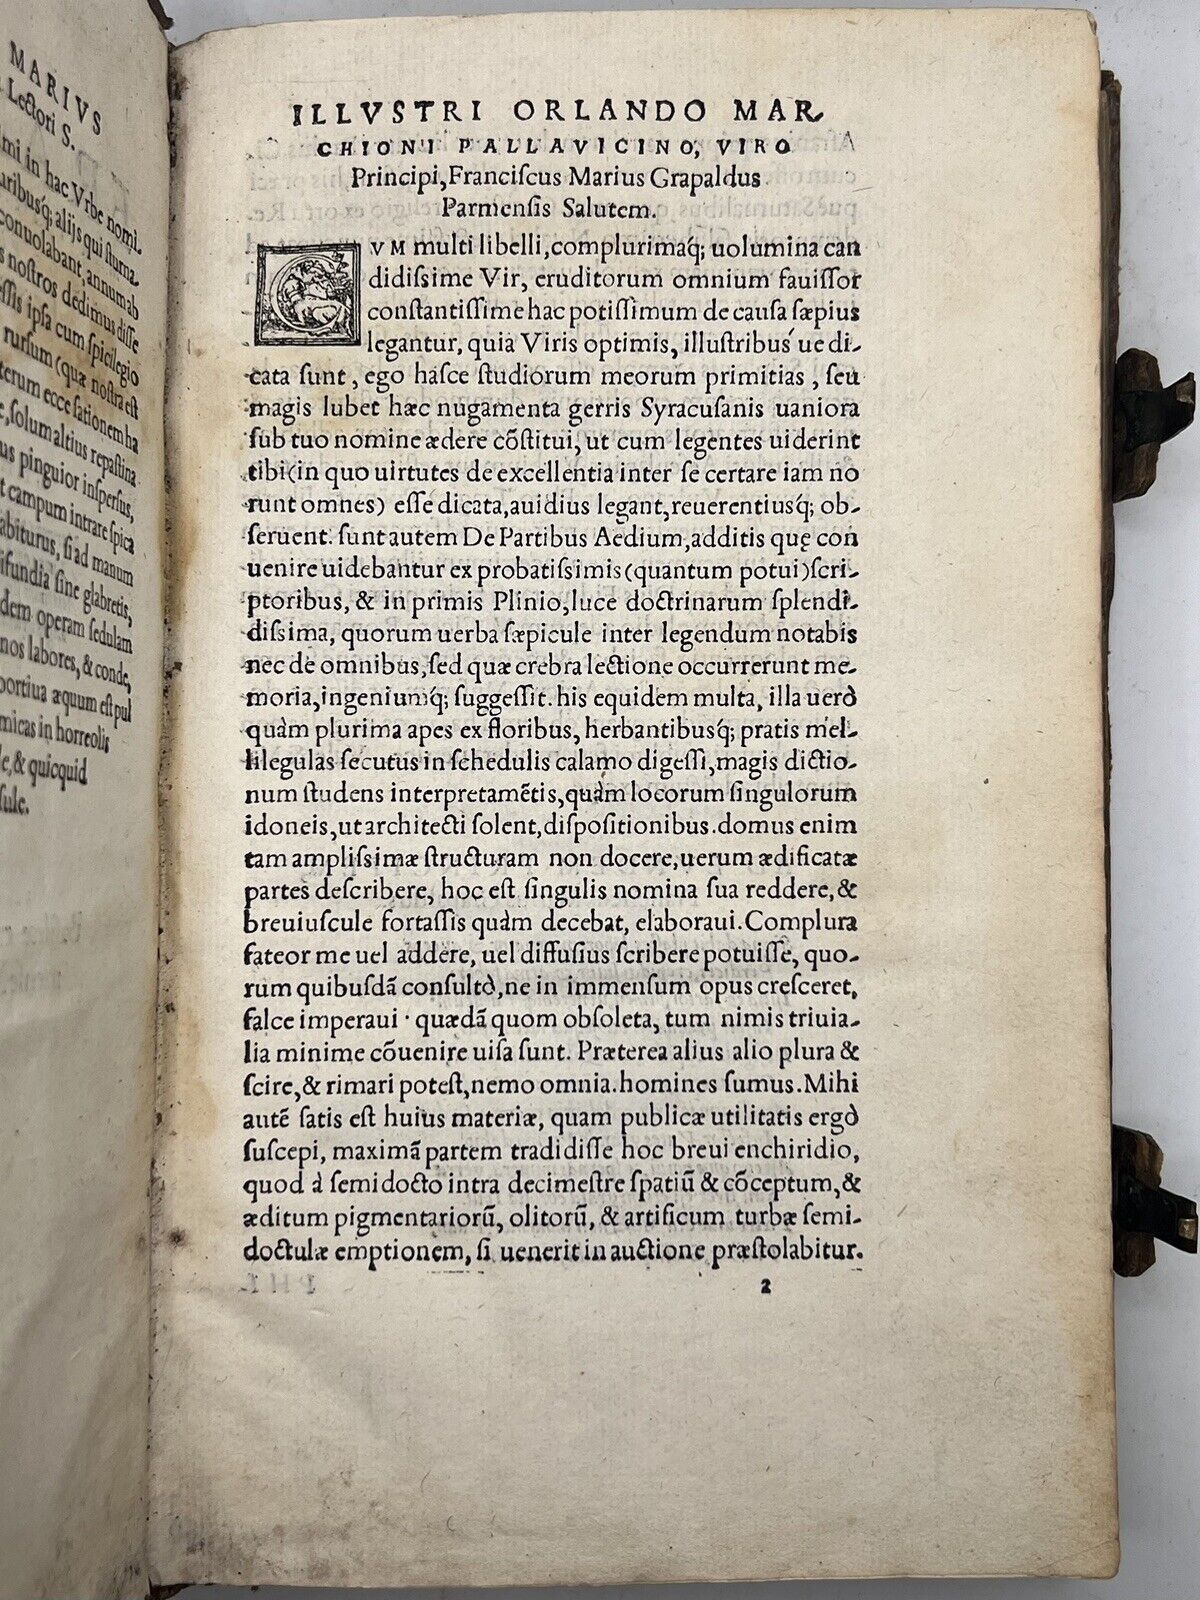 MARIVS
Lectori S.
mi in hac Vrbe nomi-
uribusq; alijs qui stuma-
conuolabant, annum ab
s nostros dedimus disse
ssis ipsa cum spicilegio
rursum (quæ nostra est
terum ecce sationem ha
e, solum altius repastina
us pinguior inspersus,
t campum intrare spica
abiturus, si ad manum
ifundia sine glabretis,
dem operam sedulam
nos labores, & conde,
portiua æquum est pul
micas in horreolis
le, & quicquid
sule.
ILLVSTRI ORLANDO MAR
CHIONI PALLAVICINO, VIRO
Principi, Franciscus Marius Grapaldus
Parmensis Salutem.
CVM multi libelli, complurimaq́; uolumina can
didissime Vir, eruditorum omnium fauissor
constantissime hac potissimum de causa sæpius
legantur, quia Viris optimis, illustribuś ue di-
cata sunt, ego hasce studiorum meorum primitias, seu
magis lubet hæc nugamenta gerris Syracusanis uaniora
sub tuo nomine ædere cõstitui, ut cum legentes uiderint
tibi (in quo uirtutes de excellentia inter se certare iam no
runt omnes) esse dicata, auidius legant, reuerentiusq́; ob-
seruent. sunt autem De Partibus Aedium, additis quę con
uenire uidebantur ex probatissimis (quantum potui) scri-
ptoribus, & in primis Plinio, luce doctrinarum splendi-
dissima, quorum uerba sæpicule inter legendum notabis
nec de omnibus, sed quæ crebra lectione occurrerunt me-
moria, ingeniumq́; suggessit. his equidem multa, illa uerò
quàm plurima apes ex floribus, herbantibusq́; pratis mel-
lilegulas secutus in sehedulis calamo digessi, magis dictio-
num studens interpretamẽtis, quàm locorum singulorum
idoneis, ut architecti solent, dispositionibus. domus enim
tam amplissimæ structuram non docere, uerum ædificatæ
partes describere, hoc est singulis nomina sua reddere, &
breuiuscule fortassis quàm decebat, elaboraui. Complura
fateor me uel addere, uel diffusius scribere potuisse, quo-
rum quibusdã consultò, ne in immensum opus cresceret,
falce imperaui · quædã quom obsoleta, tum nimis triuia-
lia minime cõuenire uisa sunt. Præterea alius alio plura &
scire, & rimari potest, nemo omnia. homines sumus. Mihi
autẽ satis est huius materiæ, quam publicæ utilitatis ergò
suscepi, maximã partem tradidisse hoc breui enchiridio,
quod à semidocto intra decimestre spatiũ & cõceptum, &
æditum pigmentariorũ, olitorũ, & artificum turbæ semi-
doctulæ emptionem, si uenerit in auctione præstolabitur.
2